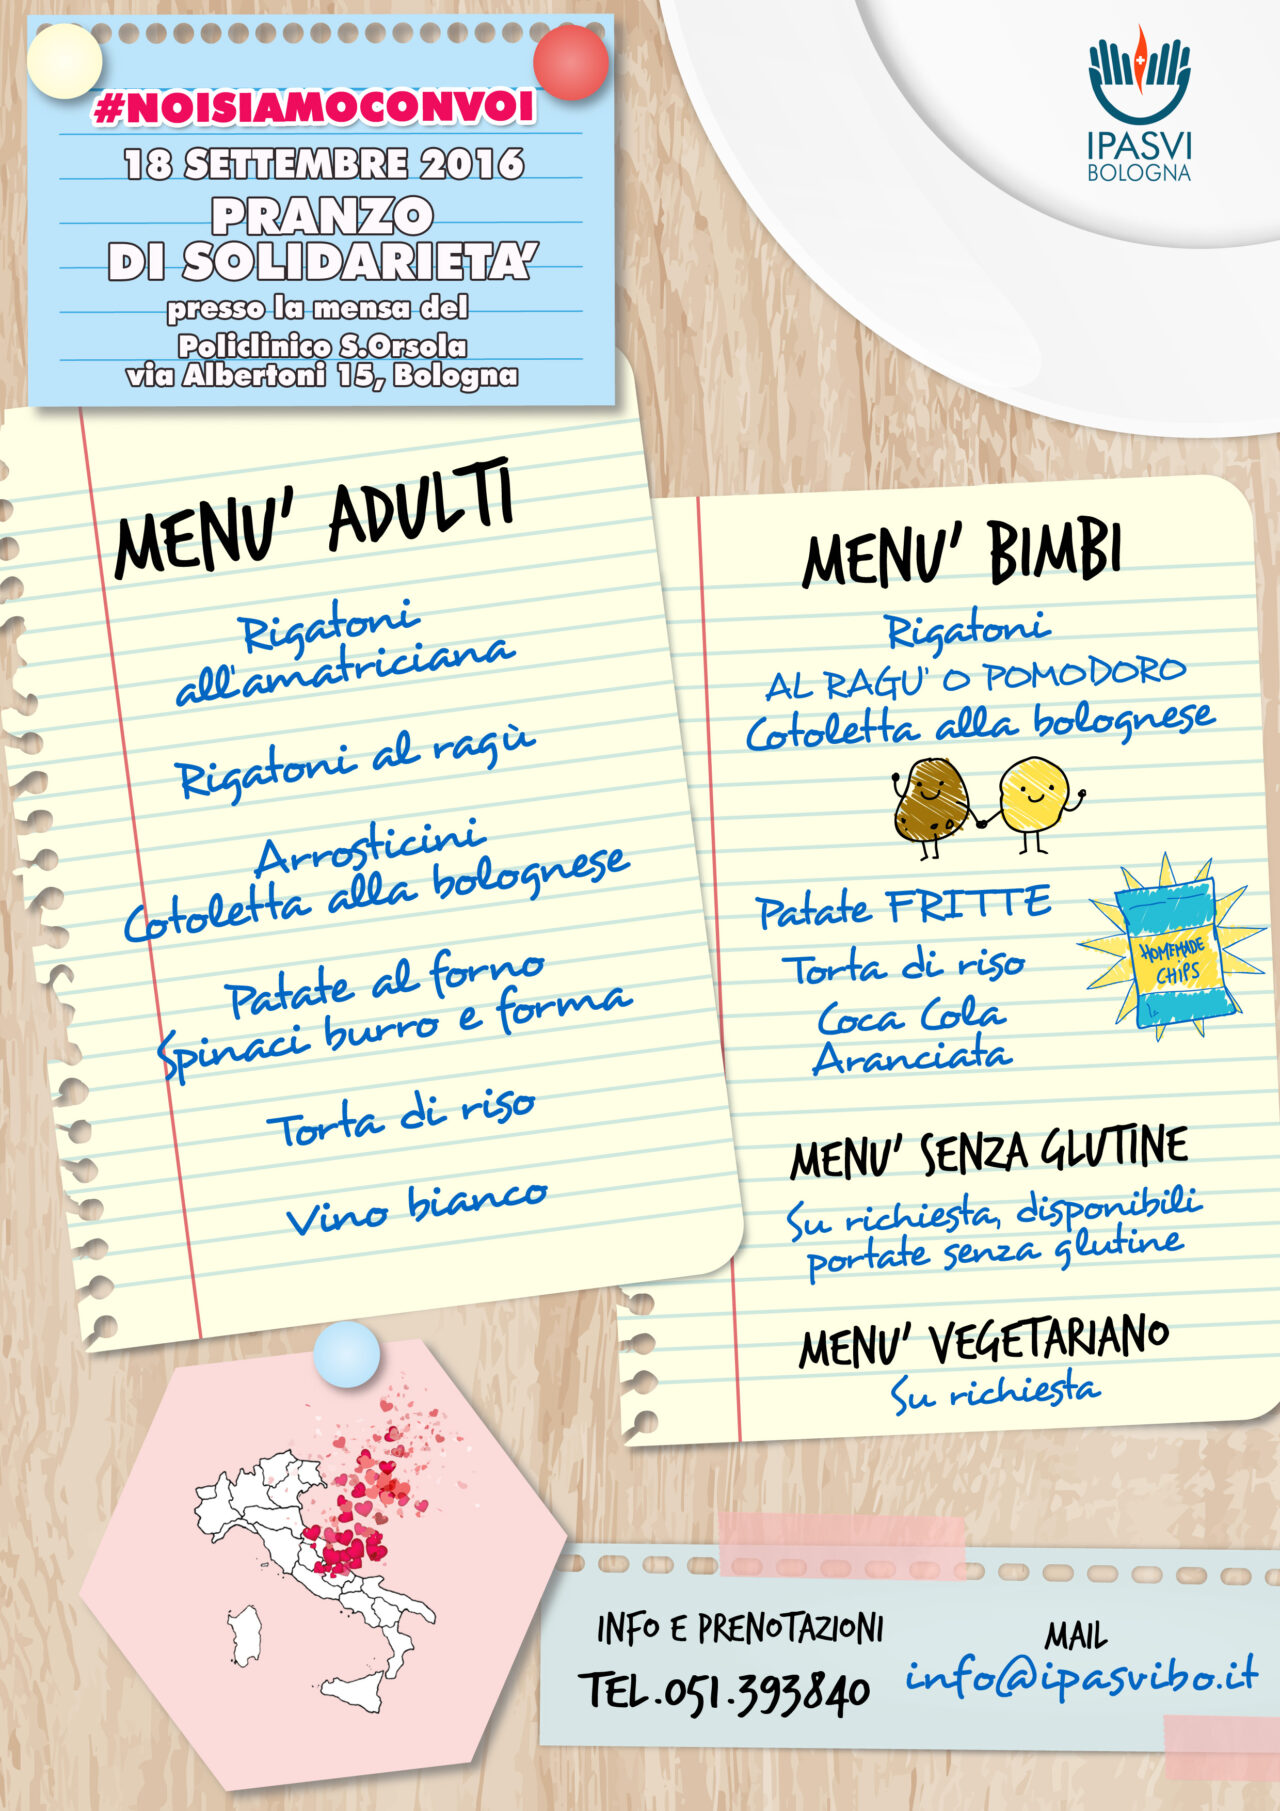 #NOISIAMOCONVOI
18 SETTEMBRE 2016
PRANZO
DI SOLIDARIETA'
presso la mensa del
Policlinico S.Orsola
via Albertoni 15, Bologna
IPASVI
BOLOGNA
MENU' ADULTI
Rigatoni
all'amatriciana
Rigatoni al ragù
Arrosticini
Cotoletta alla bolognese
Patate al forno
Spinaci burro e forma
Torta di riso
Vino bianco
MENU' BIMBI
Rigatoni
AL RAGU' O POMODORO
Cotoletta alla bolognese
Patate FRITTE
Torta di riso
Coca Cola
Aranciata
HOMEMADE
CHIPS
MENU' SENZA GLUTINE
Su richiesta, disponibili
portate senza glutine
MENU' VEGETARIANO
Su richiesta
INFO E PRENOTAZIONI
TEL.051.393840
MAIL
info@ipasvibo.it